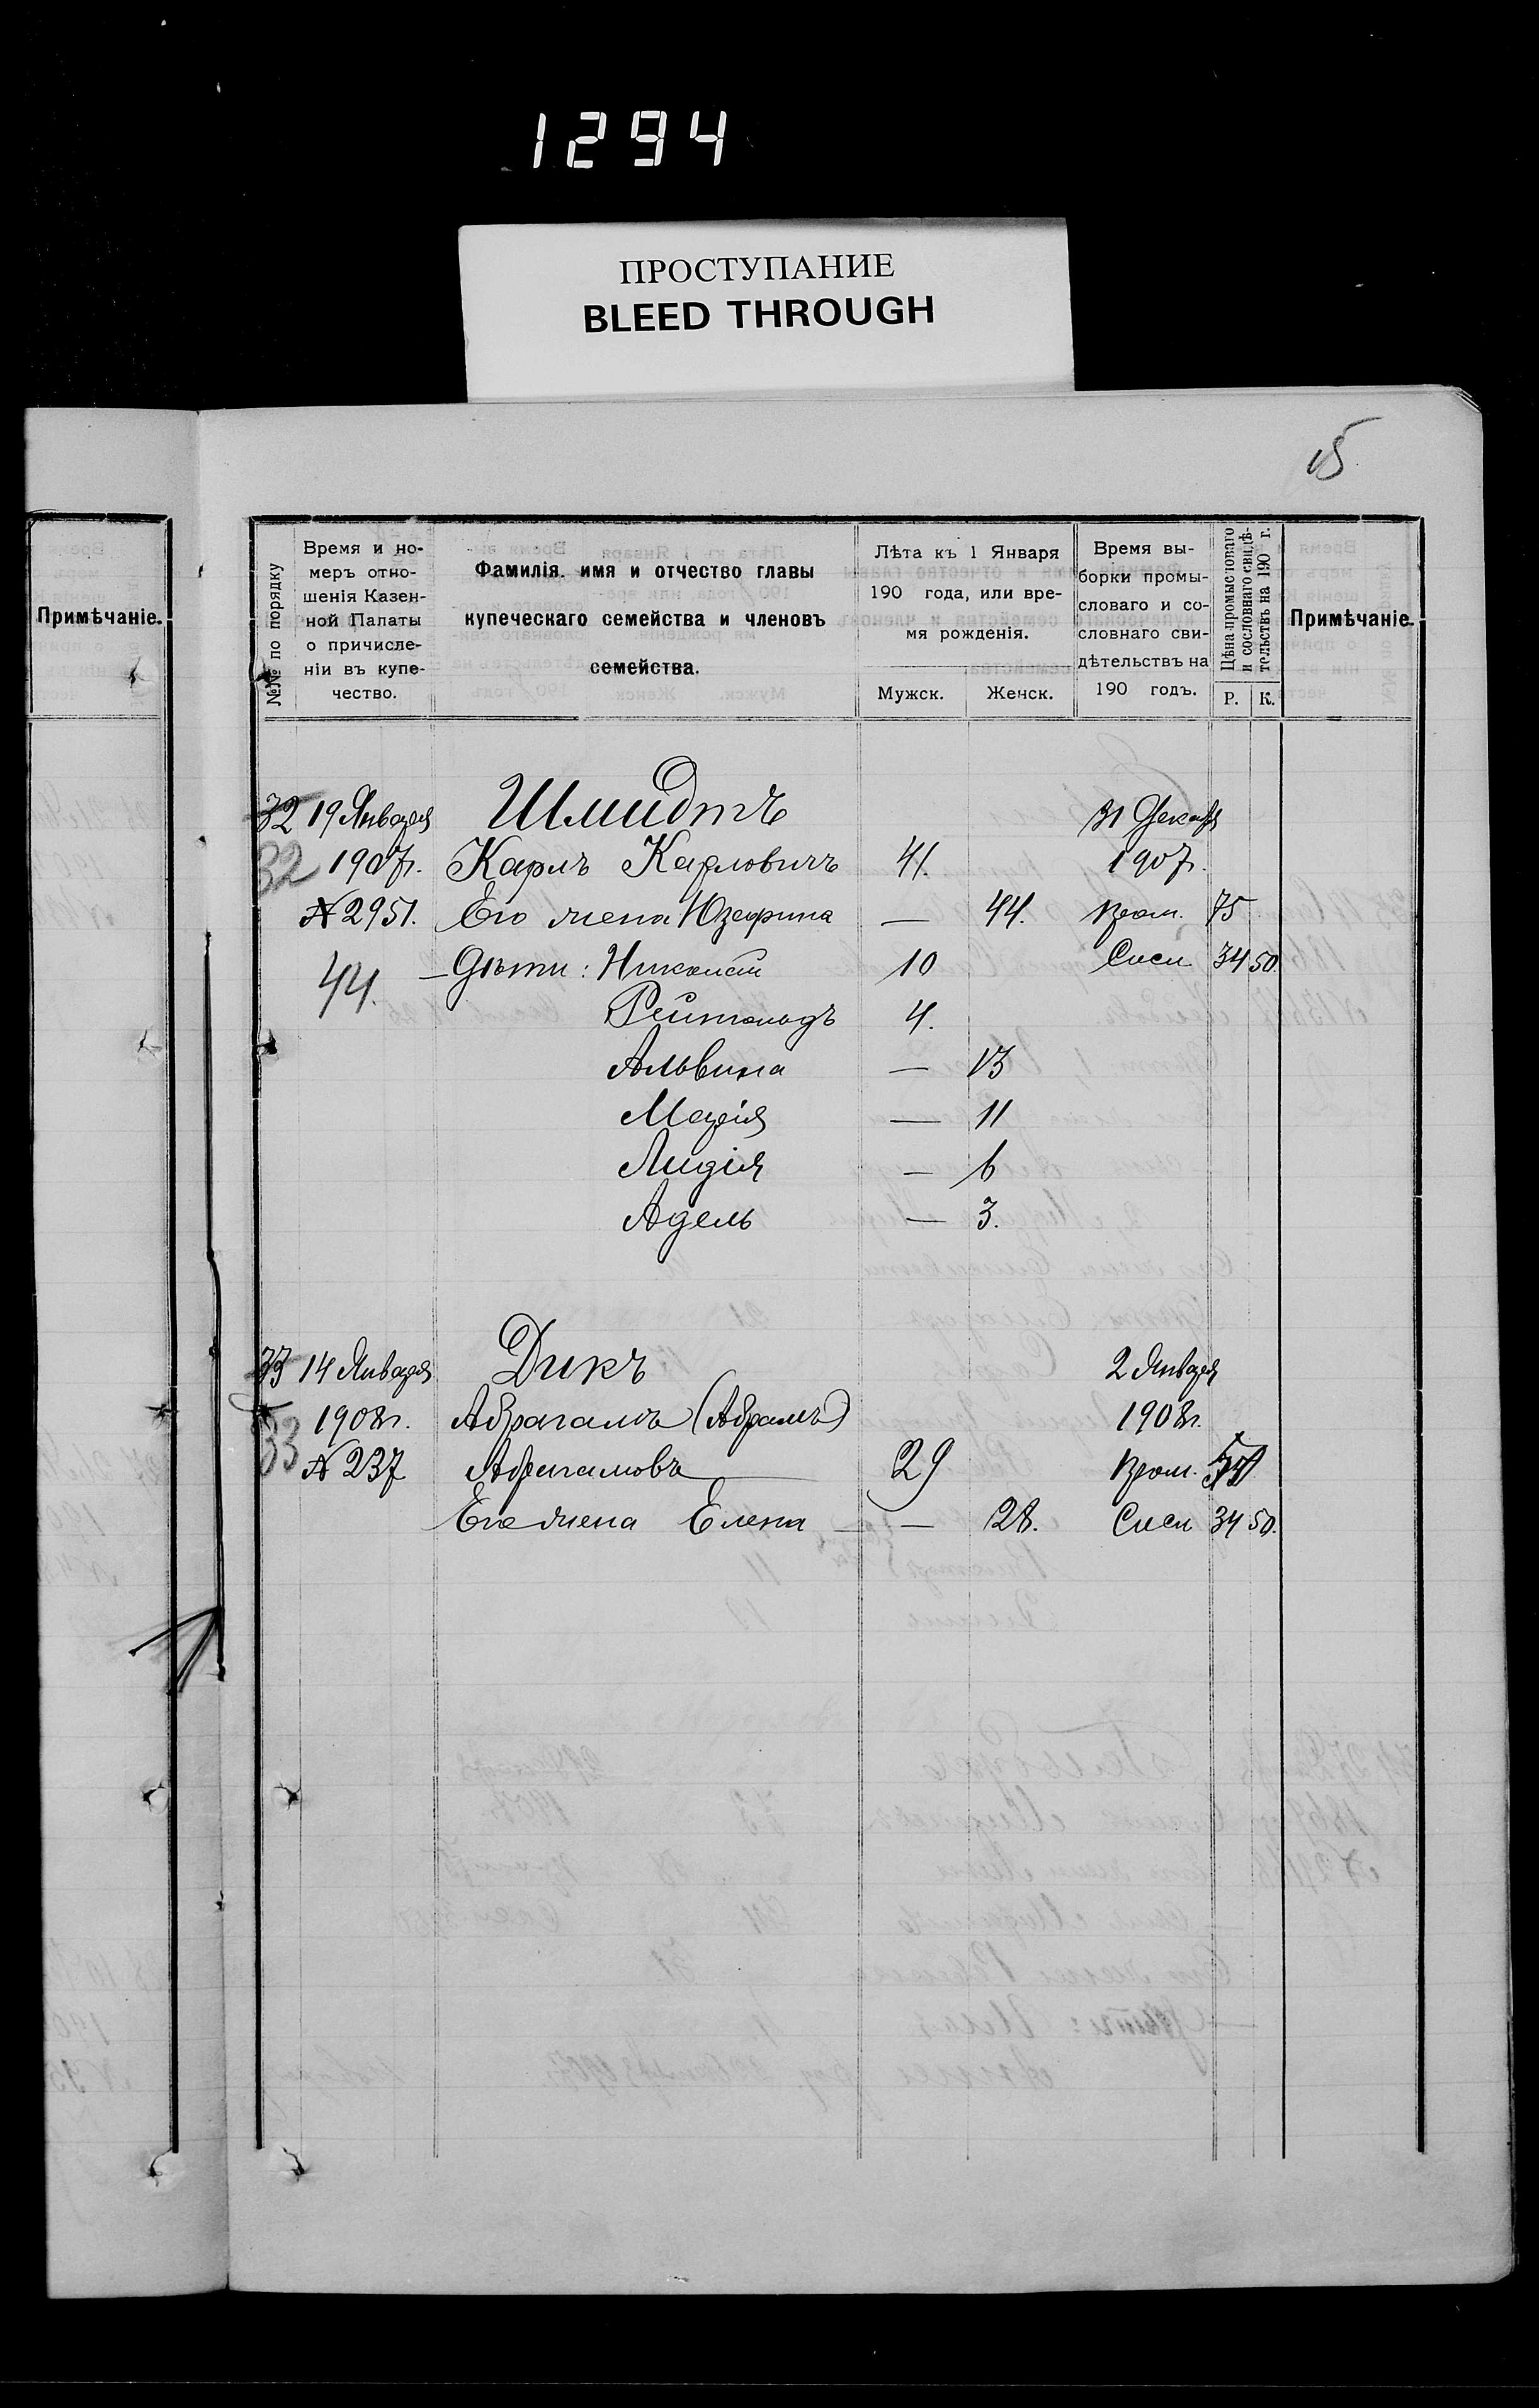 1294
ПРОСТУПАНИЕ
BLEED THROUGH
15
Примѣчаніе.
№№ по порядку
Время и но-
меръ отно-
шенія Казен-
ной Палаты
о причисле-
ніи въ купе-
чество.
Фамилія. имя и отчество главы
купеческаго семейства и членовъ
семейства.
Лѣта къ 1 Января
190 года, или вре-
мя рожденія.
Мужск. Женск.
Время вы-
борки промы-
словаго и со-
словнаго сви-
дѣтельствъ на
190 годъ.
Цѣна промысловаго
и сословнаго свидѣ-
тельствъ на 190 г.
Р. К.
Примѣчаніе.
32 19 Января Шмидтъ 31 Декабр
32 1907г. Карлъ Карловичъ 41. 1907г.
№ 2951. Его жена Юзефина — 44. Пром. 75
44. — Дѣти: 10 Сосл 34 50.
Рейнгольдъ 4.
Альвина — 13
Марія — 11
Лидія — 6
Адель — 3.
33 14 Января Дикъ 2 Января
1908г. Абрагамъ (Абрамъ) 1908г.
33 № 237 Абрагамовъ 29 Пром.
Его жена Елена — 28. Сосл 34 50.